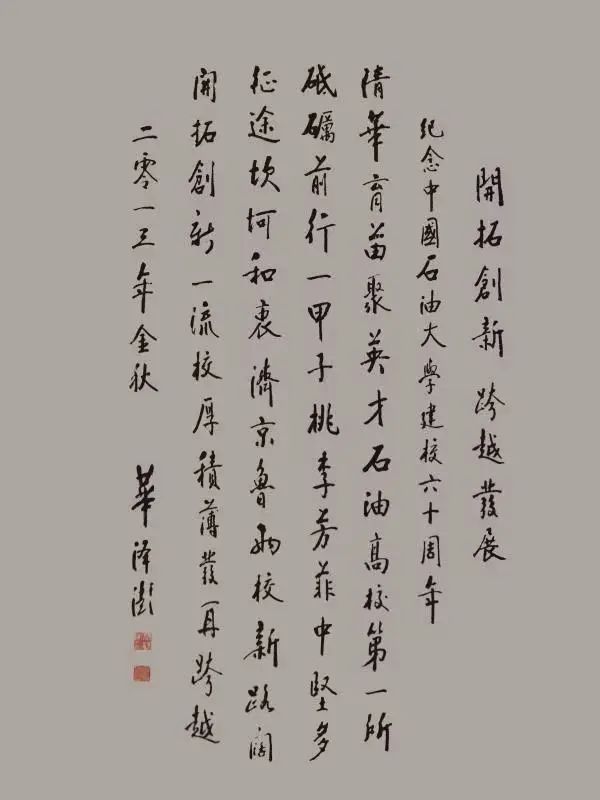 開拓創新 跨越發展
紀念中國石油大學建校六十周年
清華育苗聚英才石油高校第一所
砥礪前行一甲子桃李芳菲中堅多
征途坎坷和衷濟京魯兩校新路闊
開拓創新一流校厚積薄發再跨越
二零一三年金秋 華泽澎